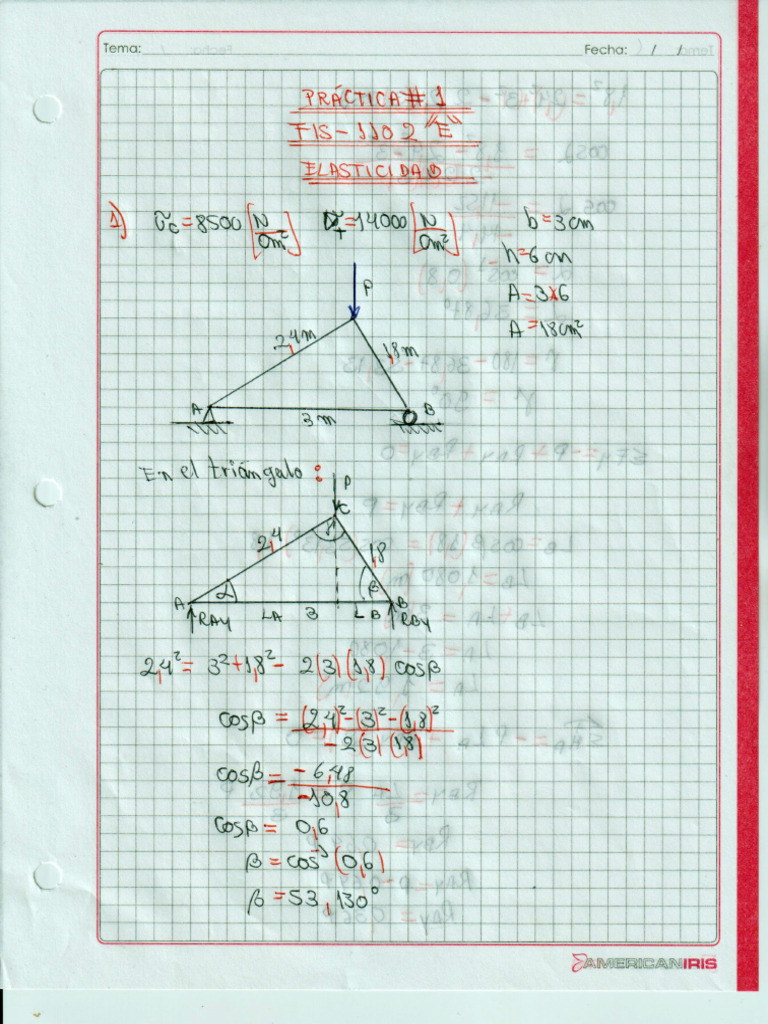 Tema: Fecha: / /
PRÁCTICA # 1
FIS-1102 "E"
ELASTICIDAD
1) σc = 8500 [N/cm²] σT = 14000 [N/cm²] b = 3cm
h = 6cm
A = 3x6
A = 18cm²
P
2,4m
1,8m
A B
3m
En el triángulo:
P
C
2,4 γ 1,8
A α β B
RAY LA 3 LB RBY
2,4² = 3² + 1,8² - 2(3)(1,8) cosβ
cosβ = (2,4)² - (3)² - (1,8)² / - 2(3)(1,8)
cosβ = - 6,48 / - 10,8
cosβ = 0,6
β = cos⁻¹(0,6)
β = 53,130°
AMERICANIRIS